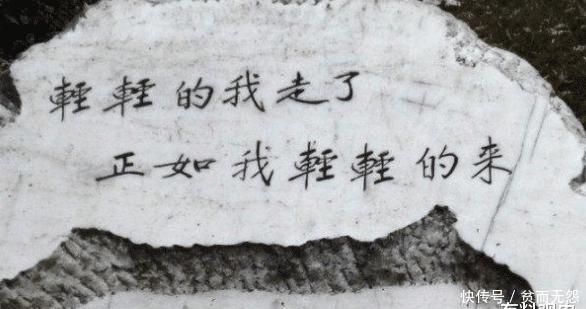 輕輕的我走了
正如我輕輕的来
快传号／贫而无怨